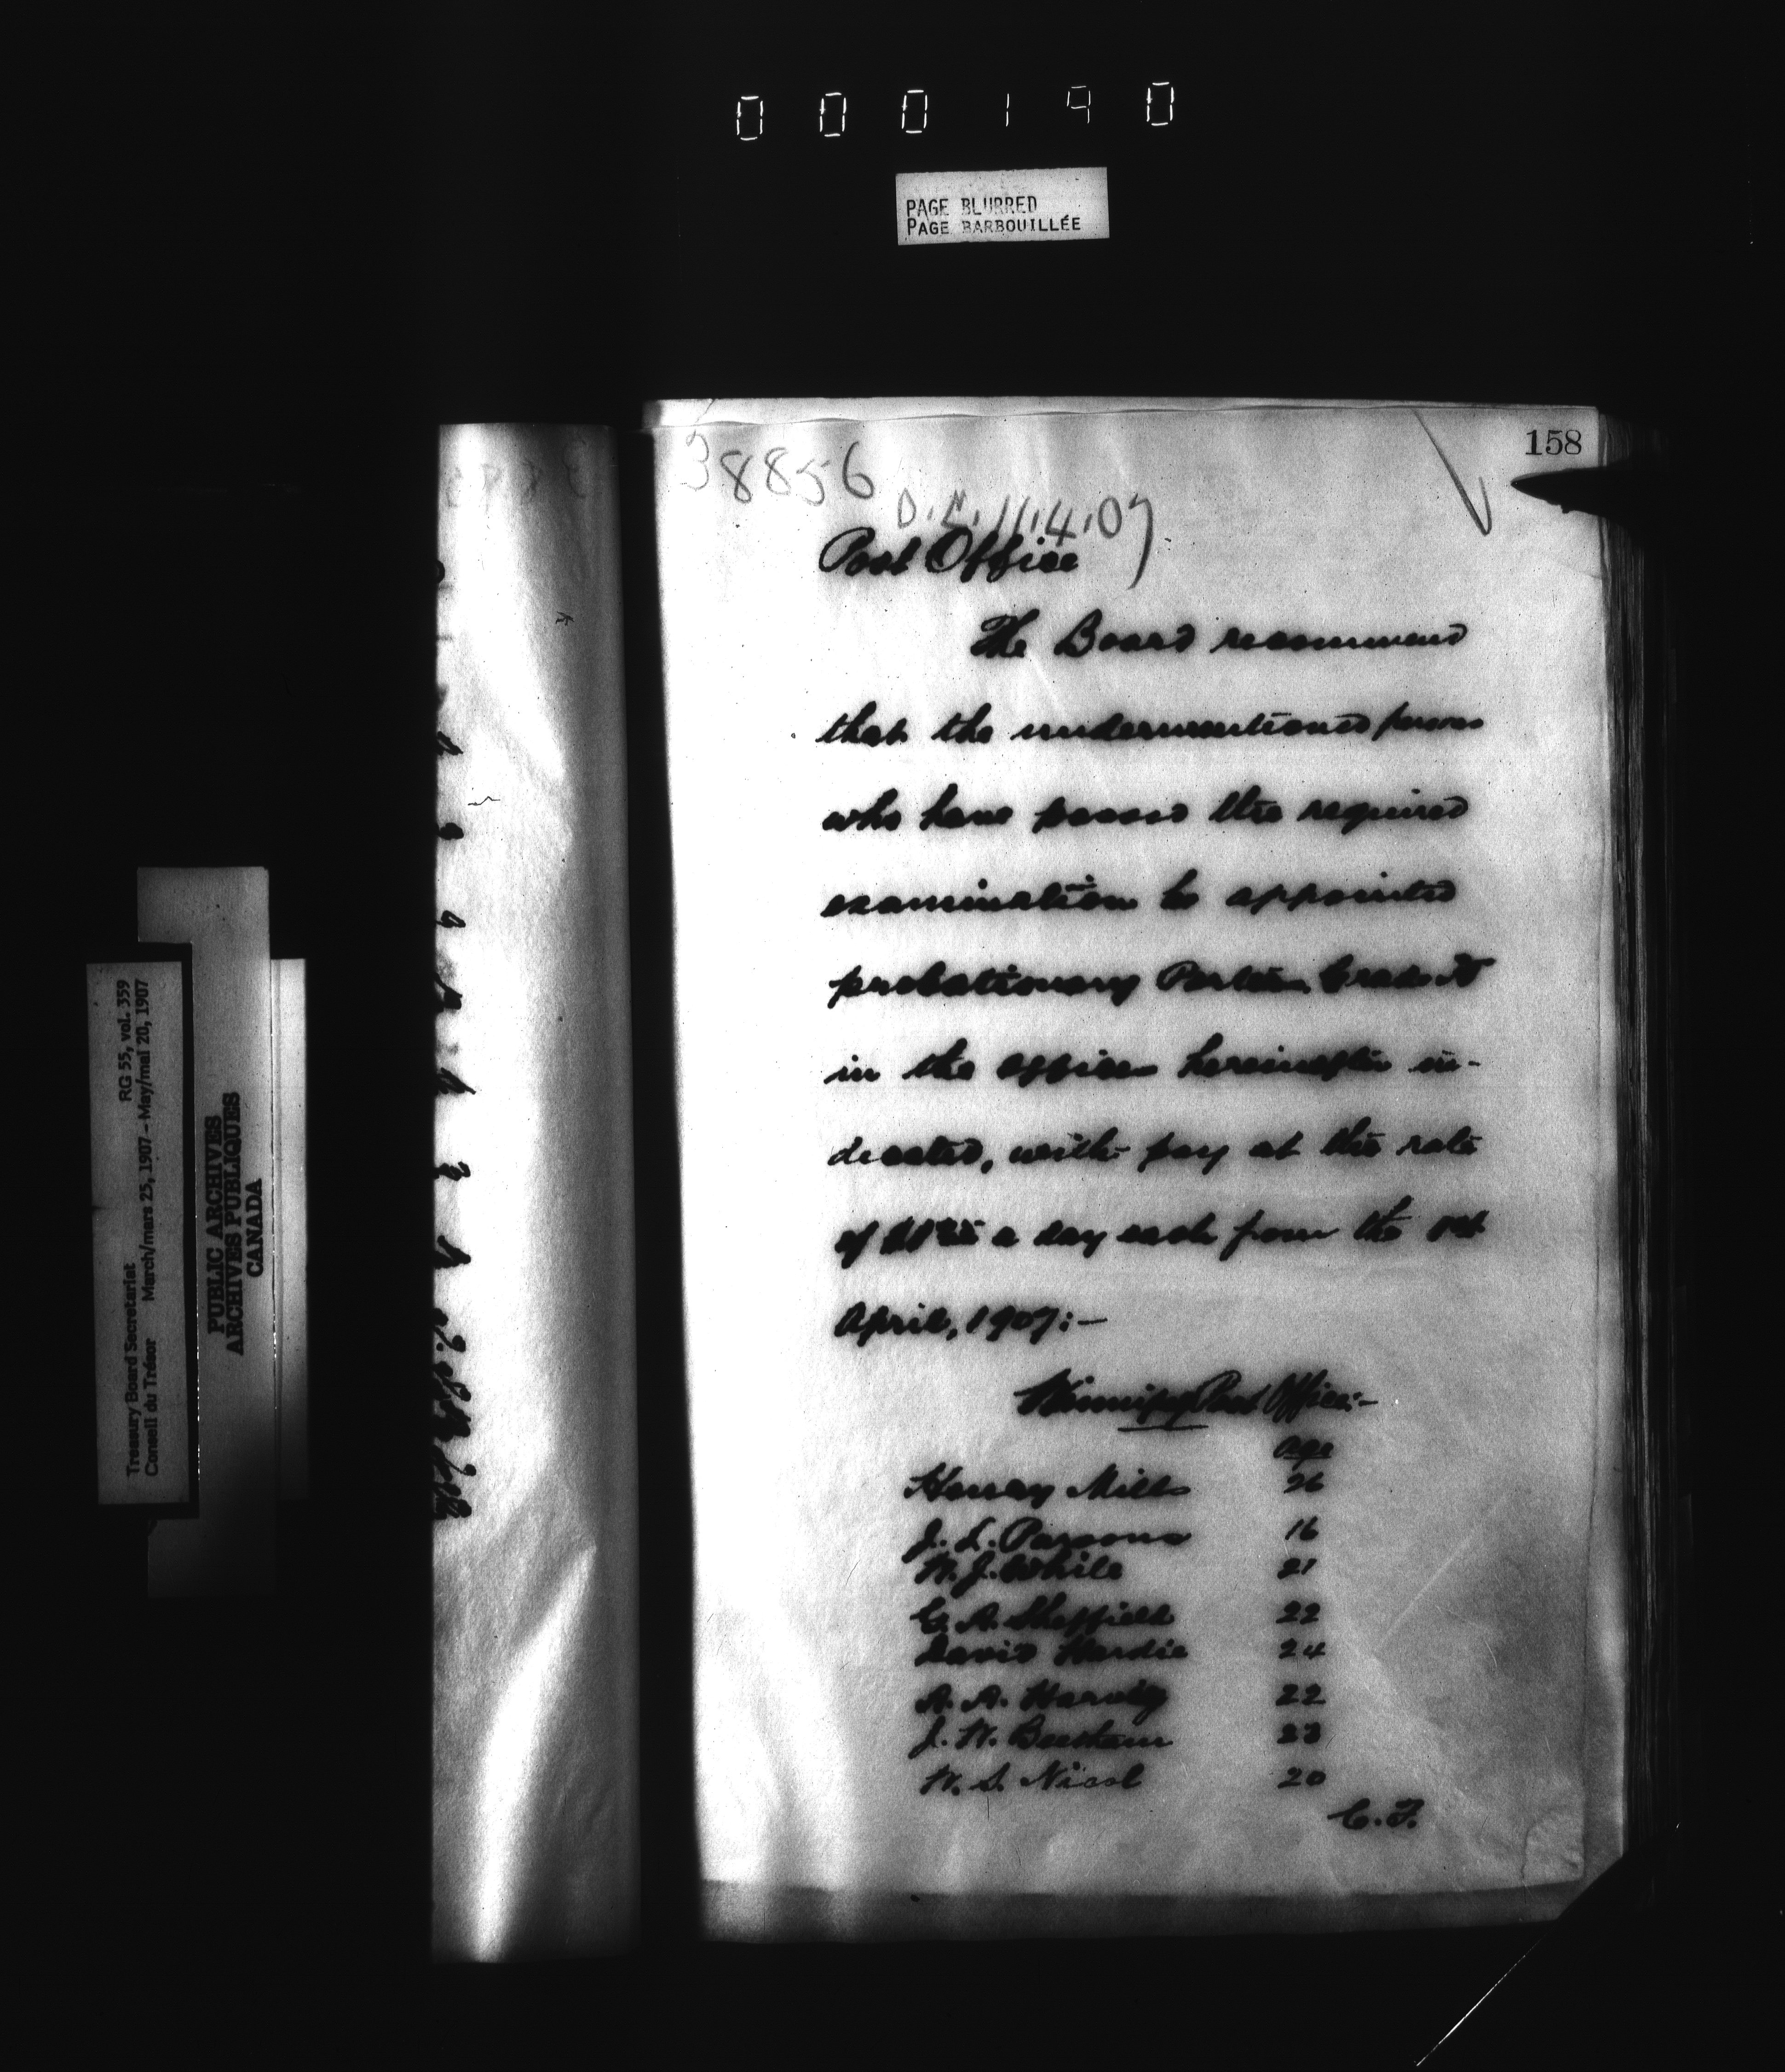 000190
PAGE BLURRED
PAGE BARBOUILLÉE
158
38856
11.4.07
Post Office
The Board recommend
that the undermentioned persons
who have passed the required
examination be appointed
probationary Porters Grade
in the offices hereinafter in-
dicated, with pay at the rate
of a day each from the 1st
April, 1907:-
Winnipeg Post Office:-
Age
Harry Mills 26
J. L. Parsons 16
W. J. White 21
C. A. Sheffield 22
David Hardie 24
A. A. Harvey 22
J. W. Beetham 23
W. S. Nicol 20
C. F.
Treasury Board Secretariat RG 55, vol. 359
Conseil du Trésor March/mars 25, 1907 - May/mai 20, 1907
PUBLIC ARCHIVES
ARCHIVES PUBLIQUES
CANADA